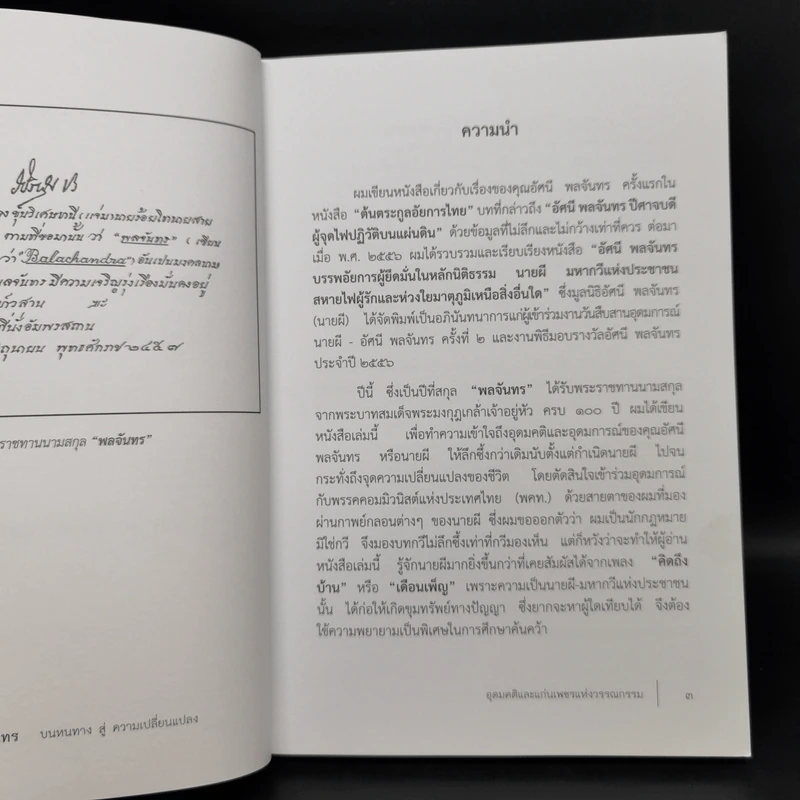 ของ ขุนวิเศษหานี (แจ่ม) นายร้อยโทนายสาย
ตามที่ขอมานั้น ว่า "พลจันทร" (เขียน
ว่า "Balachandra") อันเปนมงคลนาม
พลจันทร มีความเจริญรุ่งเรืองมั่นคงอยู่
สาน
ที่นั่งอัมพรสถาน
มิถุนายน พุทธศักราช ๒๔๕๗
ราชทานนามสกุล "พลจันทร"
ทร บนหนทาง สู่ ความเปลี่ยนแปลง
ความนำ
ผมเขียนหนังสือเกี่ยวกับเรื่องของคุณอัศนี พลจันทร ครั้งแรกใน
หนังสือ "ต้นตระกูลอัยการไทย" บทที่กล่าวถึง "อัศนี พลจันทร ปีศาจบดี
ผู้จุดไฟปฏิวัติบนแผ่นดิน" ด้วยข้อมูลที่ไม่ลึกและไม่กว้างเท่าที่ควร ต่อมา
เมื่อ พ.ศ. ๒๕๕๖ ผมได้รวบรวมและเรียบเรียงหนังสือ "อัศนี พลจันทร
บรรพอัยการผู้ยึดมั่นในหลักนิติธรรม นายผี มหากวีแห่งประชาชน
สหายไฟผู้รักและห่วงใยมาตุภูมิเหนือสิ่งอื่นใด" ซึ่งมูลนิธิอัศนี พลจันทร
(นายผี) ได้จัดพิมพ์เป็นอภินันทนาการแก่ผู้เข้าร่วมงานวันสืบสานอุดมการณ์
นายผี - อัศนี พลจันทร ครั้งที่ ๒ และงานพิธีมอบรางวัลอัศนี พลจันทร
ประจำปี ๒๕๕๖
ปีนี้ ซึ่งเป็นปีที่สกุล "พลจันทร" ได้รับพระราชทานนามสกุล
จากพระบาทสมเด็จพระมงกุฎเกล้าเจ้าอยู่หัว ครบ ๑๐๐ ปี ผมได้เขียน
หนังสือเล่มนี้ เพื่อทำความเข้าใจถึงอุดมคติและอุดมการณ์ของคุณอัศนี
พลจันทร หรือนายผี ให้ลึกซึ้งกว่าเดิมนับตั้งแต่กำเนิดนายผี ไปจน
กระทั่งถึงจุดความเปลี่ยนแปลงของชีวิต โดยตัดสินใจเข้าร่วมอุดมการณ์
กับพรรคคอมมิวนิสต์แห่งประเทศไทย (พคท.) ด้วยสายตาของผมที่มอง
ผ่านกาพย์กลอนต่างๆ ของนายผี ซึ่งผมขอออกตัวว่า ผมเป็นนักกฎหมาย
มิใช่กวี จึงมองบทกวีไม่ลึกซึ้งเท่าที่กวีมองเห็น แต่ก็หวังว่าจะทำให้ผู้อ่าน
หนังสือเล่มนี้ รู้จักนายผีมากยิ่งขึ้นกว่าที่เคยสัมผัสได้จากเพลง "คิดถึง
บ้าน" หรือ "เดือนเพ็ญ" เพราะความเป็นนายผี-มหากวีแห่งประชาชน
นั้น ได้ก่อให้เกิดขุมทรัพย์ทางปัญญา ซึ่งยากจะหาผู้ใดเทียบได้ จึงต้อง
ใช้ความพยายามเป็นพิเศษในการศึกษาค้นคว้า
อุดมคติและแก่นเพชรแห่งวรรณกรรม ๓